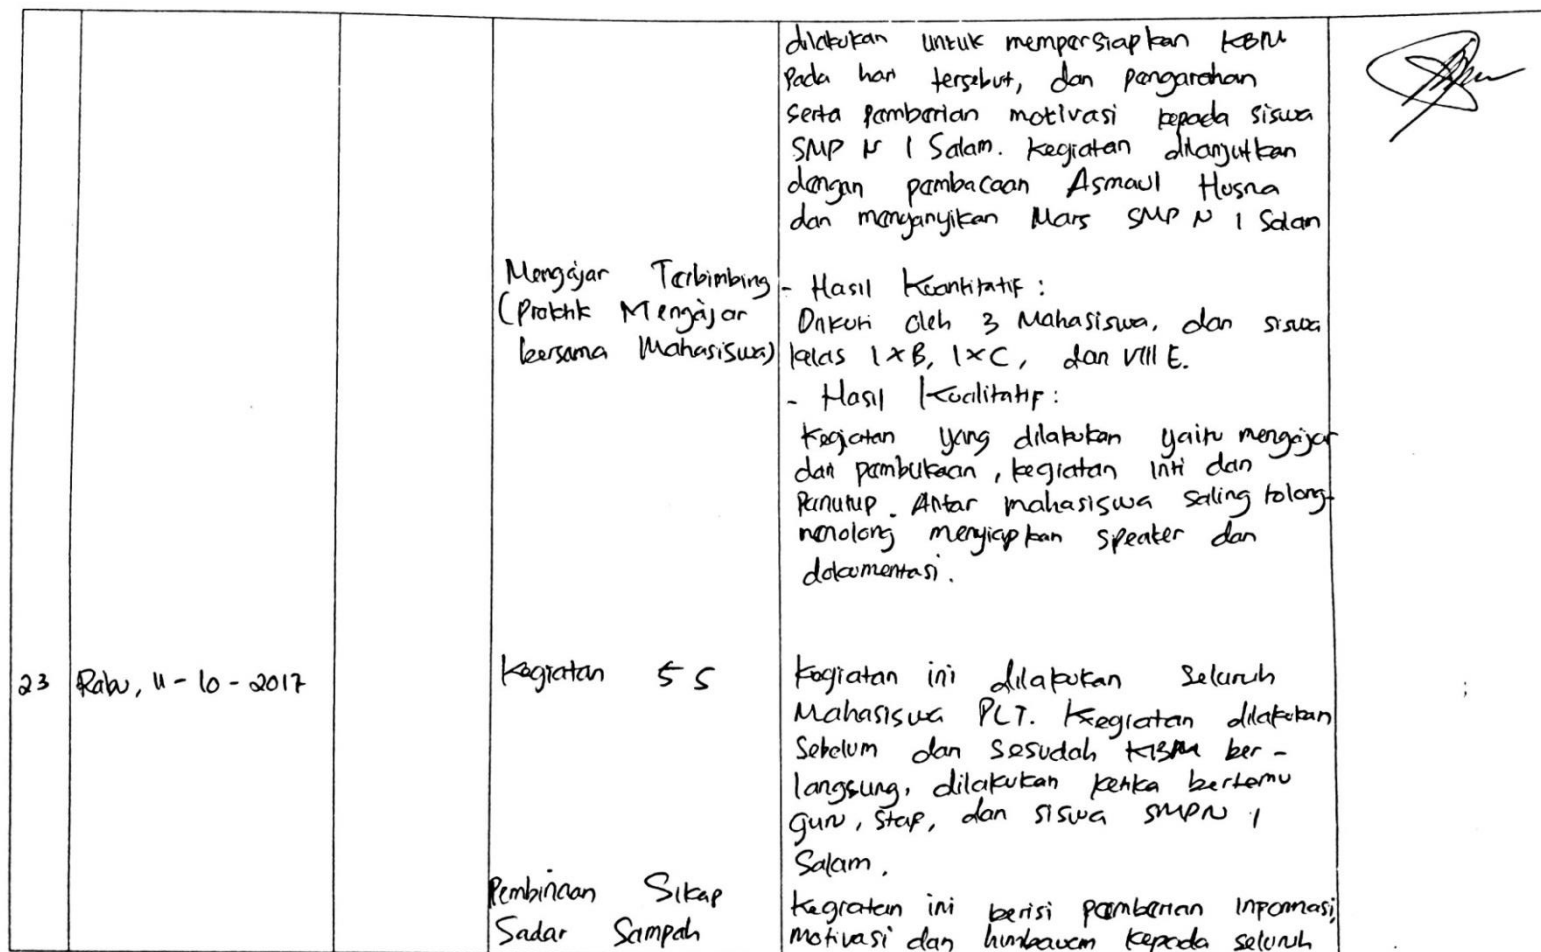 dilakukan untuk mempersiapkan KBM
Pada hari tersebut, dan pengarahan
serta pemberian motivasi kepada siswa
SMP N 1 Salam. Kegiatan dilanjutkan
dengan pembacaan Asmaul Husna
dan menyanyikan Mars SMP N 1 Salam
Mengajar Terbimbing
(Praktik Mengajar
bersama Mahasiswa)
- Hasil Kuantitatif :
Diikuti oleh 3 Mahasiswa, dan siswa
kelas IXB, IXC, dan VIII E.
- Hasil Kualitatif :
Kegiatan yang dilakukan yaitu mengajar
dari pembukaan, kegiatan inti dan
Penutup. Antar mahasiswa saling tolong-
menolong menyiapkan speaker dan
dokumentasi.
23 Rabu, 11-10-2017
Kegiatan 5S
Kegiatan ini dilakukan Seluruh
Mahasiswa PLT. Kegiatan dilakukan
Sebelum dan Sesudah KBM ber-
langsung, dilakukan ketika bertemu
guru, staf, dan siswa SMPN 1
Salam.
Pembinaan Sikap
Sadar Sampah
Kegiatan ini berisi pemberian informasi,
Motivasi dan himbauan kepada seluruh